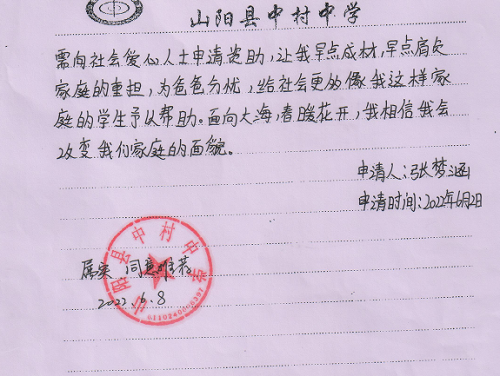 山阳县中村中学
需向社会爱心人士申请资助,让我早点成材,早点肩负
家庭的重担,为爸爸分忧,给社会更多像我这样家
庭的学生予以帮助。面向大海,春暖花开,我相信我会
改变我们家庭的面貌。
申请人:张梦涵
申请时间:2022年6月2日
属实 同意推荐
2022.6.8
山阳县中村中学